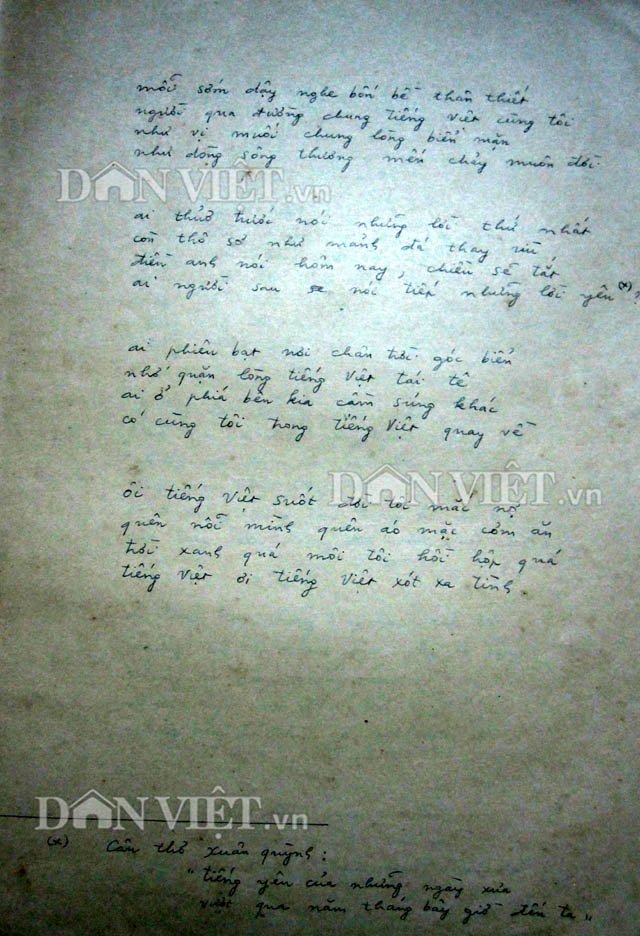 mỗi sớm dậy nghe bốn bề thân thiết
người qua đường chung tiếng Việt cùng tôi
như vị muối chung lòng biển mặn
như dòng sông thương mến chảy muôn đời
DÂN VIỆT.vn
ai thuở trước nói những lời thứ nhất
còn thô sơ như mảnh đá thay rìu
điều anh nói hôm nay, chiều sẽ tắt
ai người sau nói tiếp những lời yêu (x)?
ai phiêu bạt nơi chân trời góc biển
nhớ quặn lòng tiếng Việt tái tê
ai ở phía bên kia cầm súng khác
có cùng tôi trong tiếng Việt quay về
DÂN VIỆT.vn
ôi tiếng Việt suốt đời tôi mắc nợ
quên nỗi mình quên áo mặc cơm ăn
trời xanh quá môi tôi hồi hộp quá
tiếng Việt ơi tiếng Việt xót xa tình
DÂN VIỆT.vn
(x) Câu thơ xuân quỳnh:
"tiếng yêu của những ngày xưa
vượt qua năm tháng bây giờ đến ta"